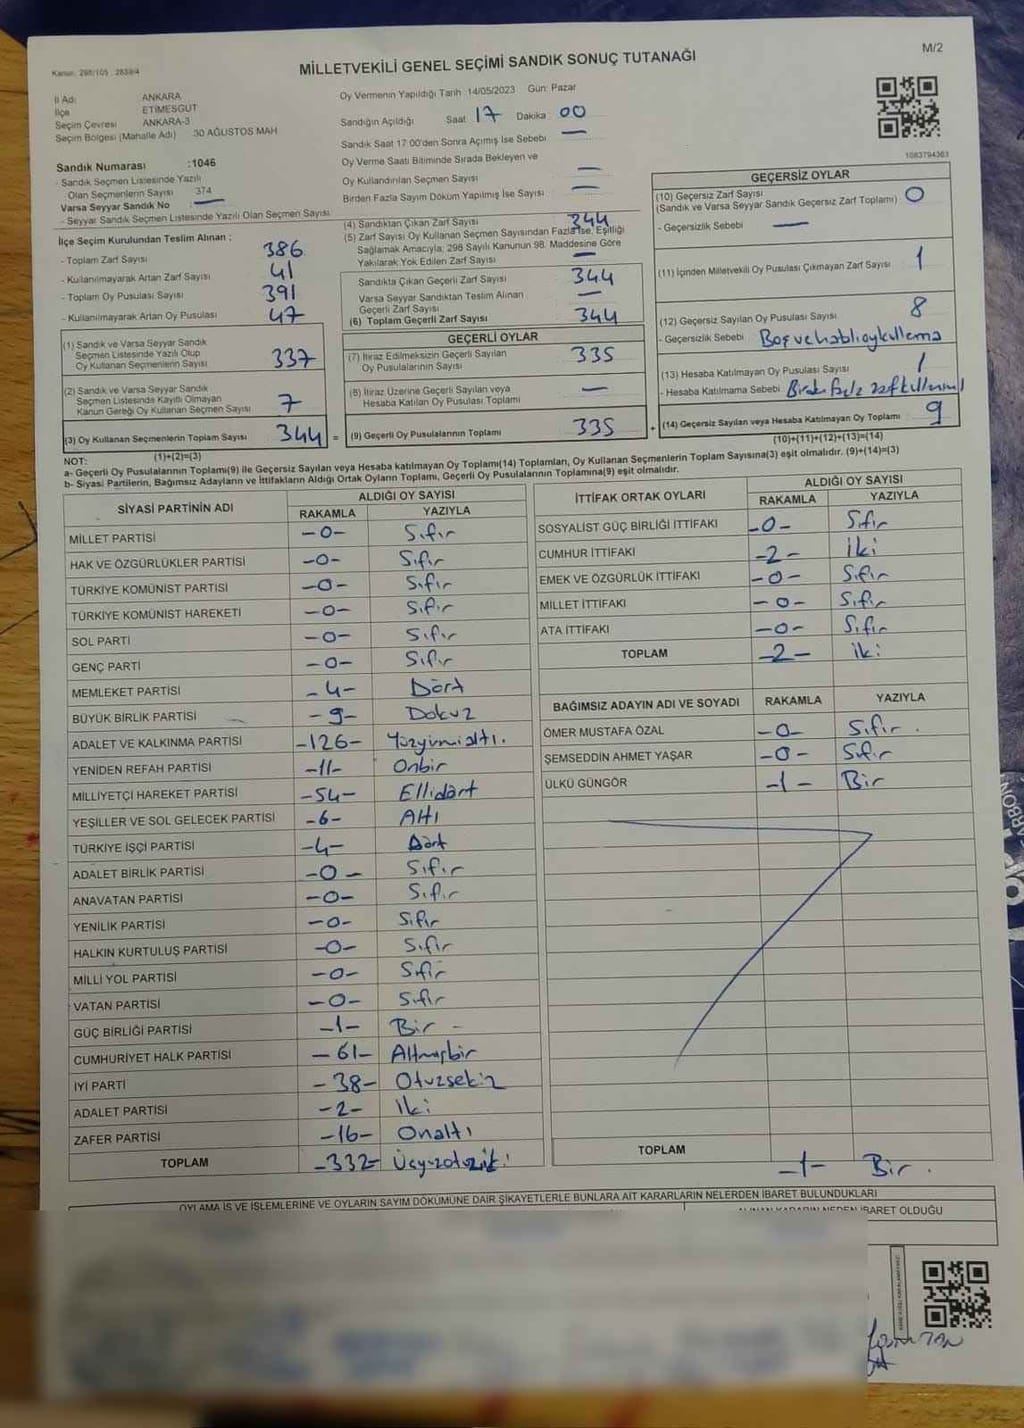 M/2
Kanun: 298/105 2839/4
MİLLETVEKİLİ GENEL SEÇİMİ SANDIK SONUÇ TUTANAĞI
İl Adı ANKARA
İlçe ETİMESGUT
Seçim Çevresi ANKARA-3
Seçim Bölgesi (Mahalle Adı) 30 AĞUSTOS MAH
Oy Vermenin Yapıldığı Tarih :14/05/2023 Gün: Pazar
Sandığın Açıldığı Saat 17 Dakika 00
Sandık Saat 17:00'den Sonra Açımış İse Sebebi —
Oy Verme Saati Bitiminde Sırada Bekleyen ve
Oy Kullandırılan Seçmen Sayısı —
Birden Fazla Sayım Döküm Yapılmış İse Sayısı —
1083794363
Sandık Numarası :1046
- Sandık Seçmen Listesinde Yazılı
Olan Seçmenlerin Sayısı 374
Varsa Seyyar Sandık No —
- Seyyar Sandık Seçmen Listesinde Yazılı Olan Seçmen Sayısı
İlçe Seçim Kurulundan Teslim Alınan :
- Toplam Zarf Sayısı 386
- Kullanılmayarak Artan Zarf Sayısı 41
- Toplam Oy Pusulası Sayısı 391
- Kullanılmayarak Artan Oy Pusulası 47
(1) Sandık ve Varsa Seyyar Sandık
Seçmen Listesinde Yazılı Olup
Oy Kullanan Seçmenlerin Sayısı 337
(2) Sandık ve Varsa Seyyar Sandık
Seçmen Listesinde Kayıtlı Olmayan
Kanun Gereği Oy Kullanan Seçmen Sayısı 7
(3) Oy Kullanan Seçmenlerin Toplam Sayısı 344 =
(1)+(2)=(3)
(4) Sandıktan Çıkan Zarf Sayısı 344
(5) Zarf Sayısı Oy Kullanan Seçmen Sayısından Fazla İse, Eşitliği
Sağlamak Amacıyla; 298 Sayılı Kanunun 98. Maddesine Göre
Yakılarak Yok Edilen Zarf Sayısı —
Sandıkta Çıkan Geçerli Zarf Sayısı 344
Varsa Seyyar Sandıktan Teslim Alınan
Geçerli Zarf Sayısı —
(6) Toplam Geçerli Zarf Sayısı 344
GEÇERLİ OYLAR
(7) İtiraz Edilmeksizin Geçerli Sayılan
Oy Pusulalarının Sayısı 335
(8) İtiraz Üzerine Geçerli Sayılan veya
Hesaba Katılan Oy Pusulası Toplamı —
(9) Geçerli Oy Pusulalarının Toplamı 335 +
GEÇERSİZ OYLAR
(10) Geçersiz Zarf Sayısı
(Sandık ve Varsa Seyyar Sandık Geçersiz Zarf Toplamı) 0
- Geçersizlik Sebebi —
(11) İçinden Milletvekili Oy Pusulası Çıkmayan Zarf Sayısı 1
(12) Geçersiz Sayılan Oy Pusulası Sayısı 8
- Geçersizlik Sebebi Boş ve
(13) Hesaba Katılmayan Oy Pusulası Sayısı 1
- Hesaba Katılmama Sebebi
(14) Geçersiz Sayılan veya Hesaba Katılmayan Oy Toplamı 9
(10)+(11)+(12)+(13)=(14)
NOT:
a- Geçerli Oy Pusulalarının Toplamı(9) ile Geçersiz Sayılan veya Hesaba katılmayan Oy Toplamı(14) Toplamları, Oy Kullanan Seçmenlerin Toplam Sayısına(3) eşit olmalıdır. (9)+(14)=(3)
b- Siyasi Partilerin, Bağımsız Adayların ve İttifakların Aldığı Ortak Oyların Toplamı, Geçerli Oy Pusulalarının Toplamına(9) eşit olmalıdır.
SİYASİ PARTİNİN ADI ALDIĞI OY SAYISI
RAKAMLA YAZIYLA
MİLLET PARTİSİ -0- Sıfır
HAK VE ÖZGÜRLÜKLER PARTİSİ -0- Sıfır
TÜRKİYE KOMÜNİST PARTİSİ -0- Sıfır
TÜRKİYE KOMÜNİST HAREKETİ -0- Sıfır
SOL PARTİ -0- Sıfır
GENÇ PARTİ -0- Sıfır
MEMLEKET PARTİSİ -4- Dört
BÜYÜK BİRLİK PARTİSİ -9- Dokuz
ADALET VE KALKINMA PARTİSİ -126- Yüzyirmialtı.
YENİDEN REFAH PARTİSİ -11- Onbir
MİLLİYETÇİ HAREKET PARTİSİ -54- Ellidört
YEŞİLLER VE SOL GELECEK PARTİSİ -6- Altı
TÜRKİYE İŞÇİ PARTİSİ -4- Dört
ADALET BİRLİK PARTİSİ -0- Sıfır
ANAVATAN PARTİSİ -0- Sıfır
YENİLİK PARTİSİ -0- Sıfır
HALKIN KURTULUŞ PARTİSİ -0- Sıfır
MİLLİ YOL PARTİSİ -0- Sıfır
VATAN PARTİSİ -0- Sıfır
GÜÇ BİRLİĞİ PARTİSİ -1- Bir -
CUMHURİYET HALK PARTİSİ -61- Altmışbir
İYİ PARTİ -38- Otuzsekiz
ADALET PARTİSİ -2- İki
ZAFER PARTİSİ -16- Onaltı
TOPLAM -332- Üçyüzotuziki
İTTİFAK ORTAK OYLARI ALDIĞI OY SAYISI
RAKAMLA YAZIYLA
SOSYALİST GÜÇ BİRLİĞİ İTTİFAKI -0- Sıfır
CUMHUR İTTİFAKI -2- İki
EMEK VE ÖZGÜRLÜK İTTİFAKI -0- Sıfır
MİLLET İTTİFAKI -0- Sıfır
ATA İTTİFAKI -0- Sıfır
TOPLAM -2- iki
BAĞIMSIZ ADAYIN ADI VE SOYADI RAKAMLA YAZIYLA
ÖMER MUSTAFA ÖZAL -0- Sıfır.
ŞEMSEDDİN AHMET YAŞAR -0- Sıfır
ÜLKÜ GÜNGÖR -1- Bir
TOPLAM -1- Bir.
OYLAMA İŞ VE İŞLEMLERİNE VE OYLARIN SAYIM DÖKÜMÜNE DAİR ŞİKAYETLERLE BUNLARA AİT KARARLARIN NELERDEN İBARET BULUNDUKLARI
İBARET OLDUĞU